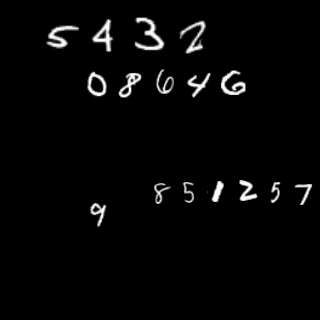 5432
08646
851257
9